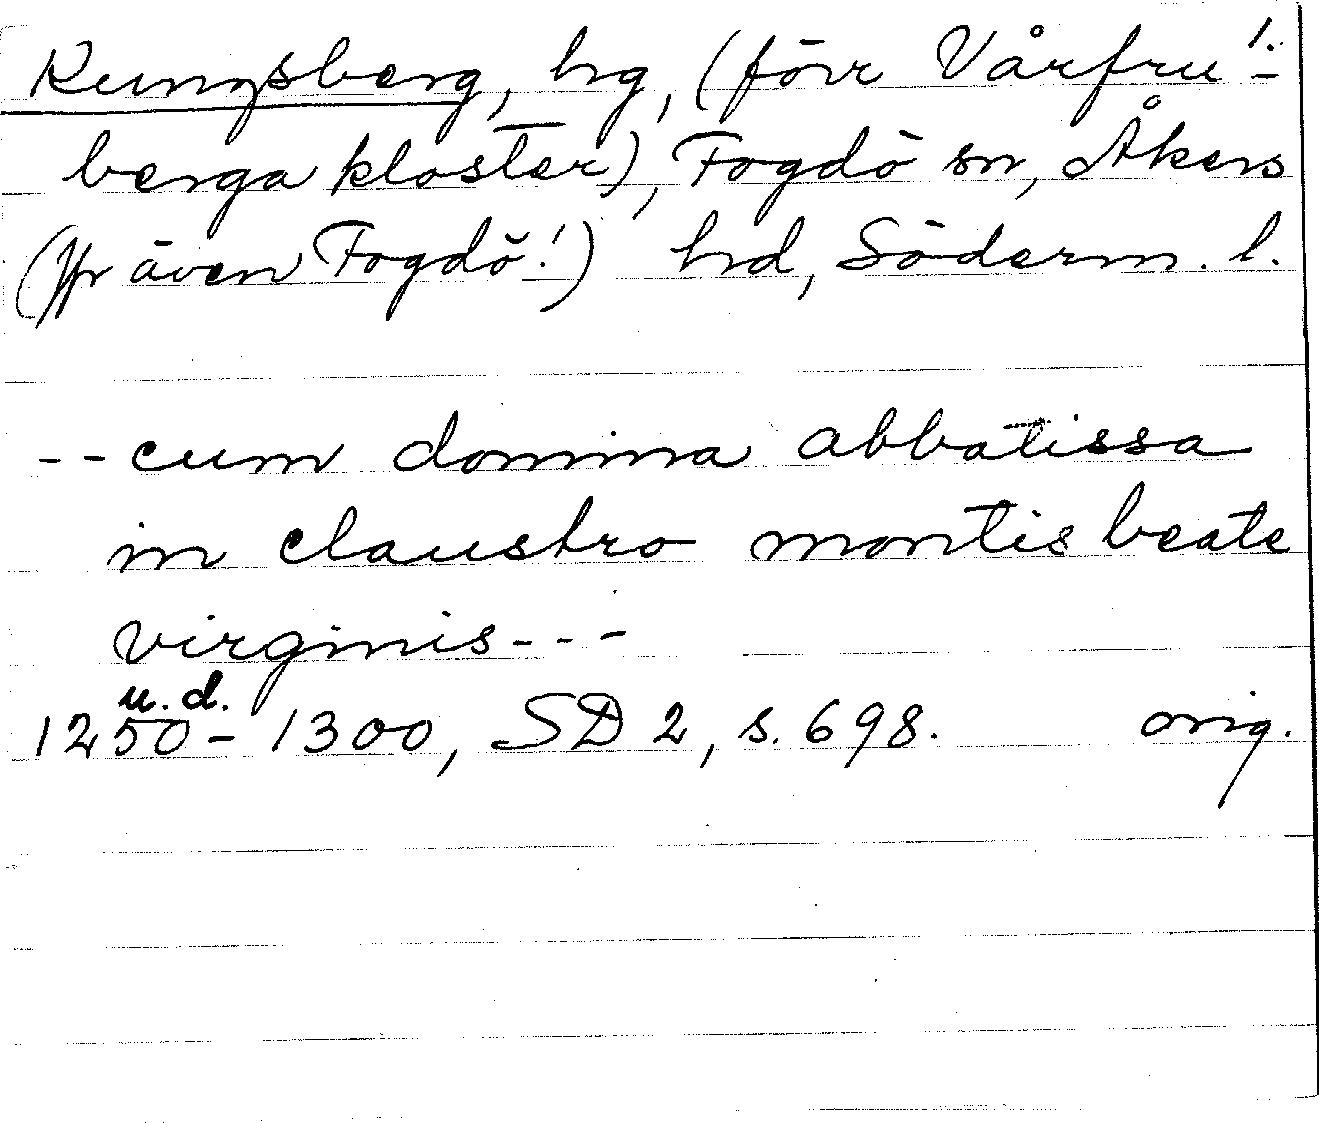 Kungsberg, hg, (förr Vårfru- 1.
berga kloster), Fogdö sn, Åkers
(Jfr även Fogdö!) hd, Söderm. l.
-- cum domina abbatissa
in claustro montis beate
virginis ---
u.d.
1250-1300, SD 2, s. 698. orig.